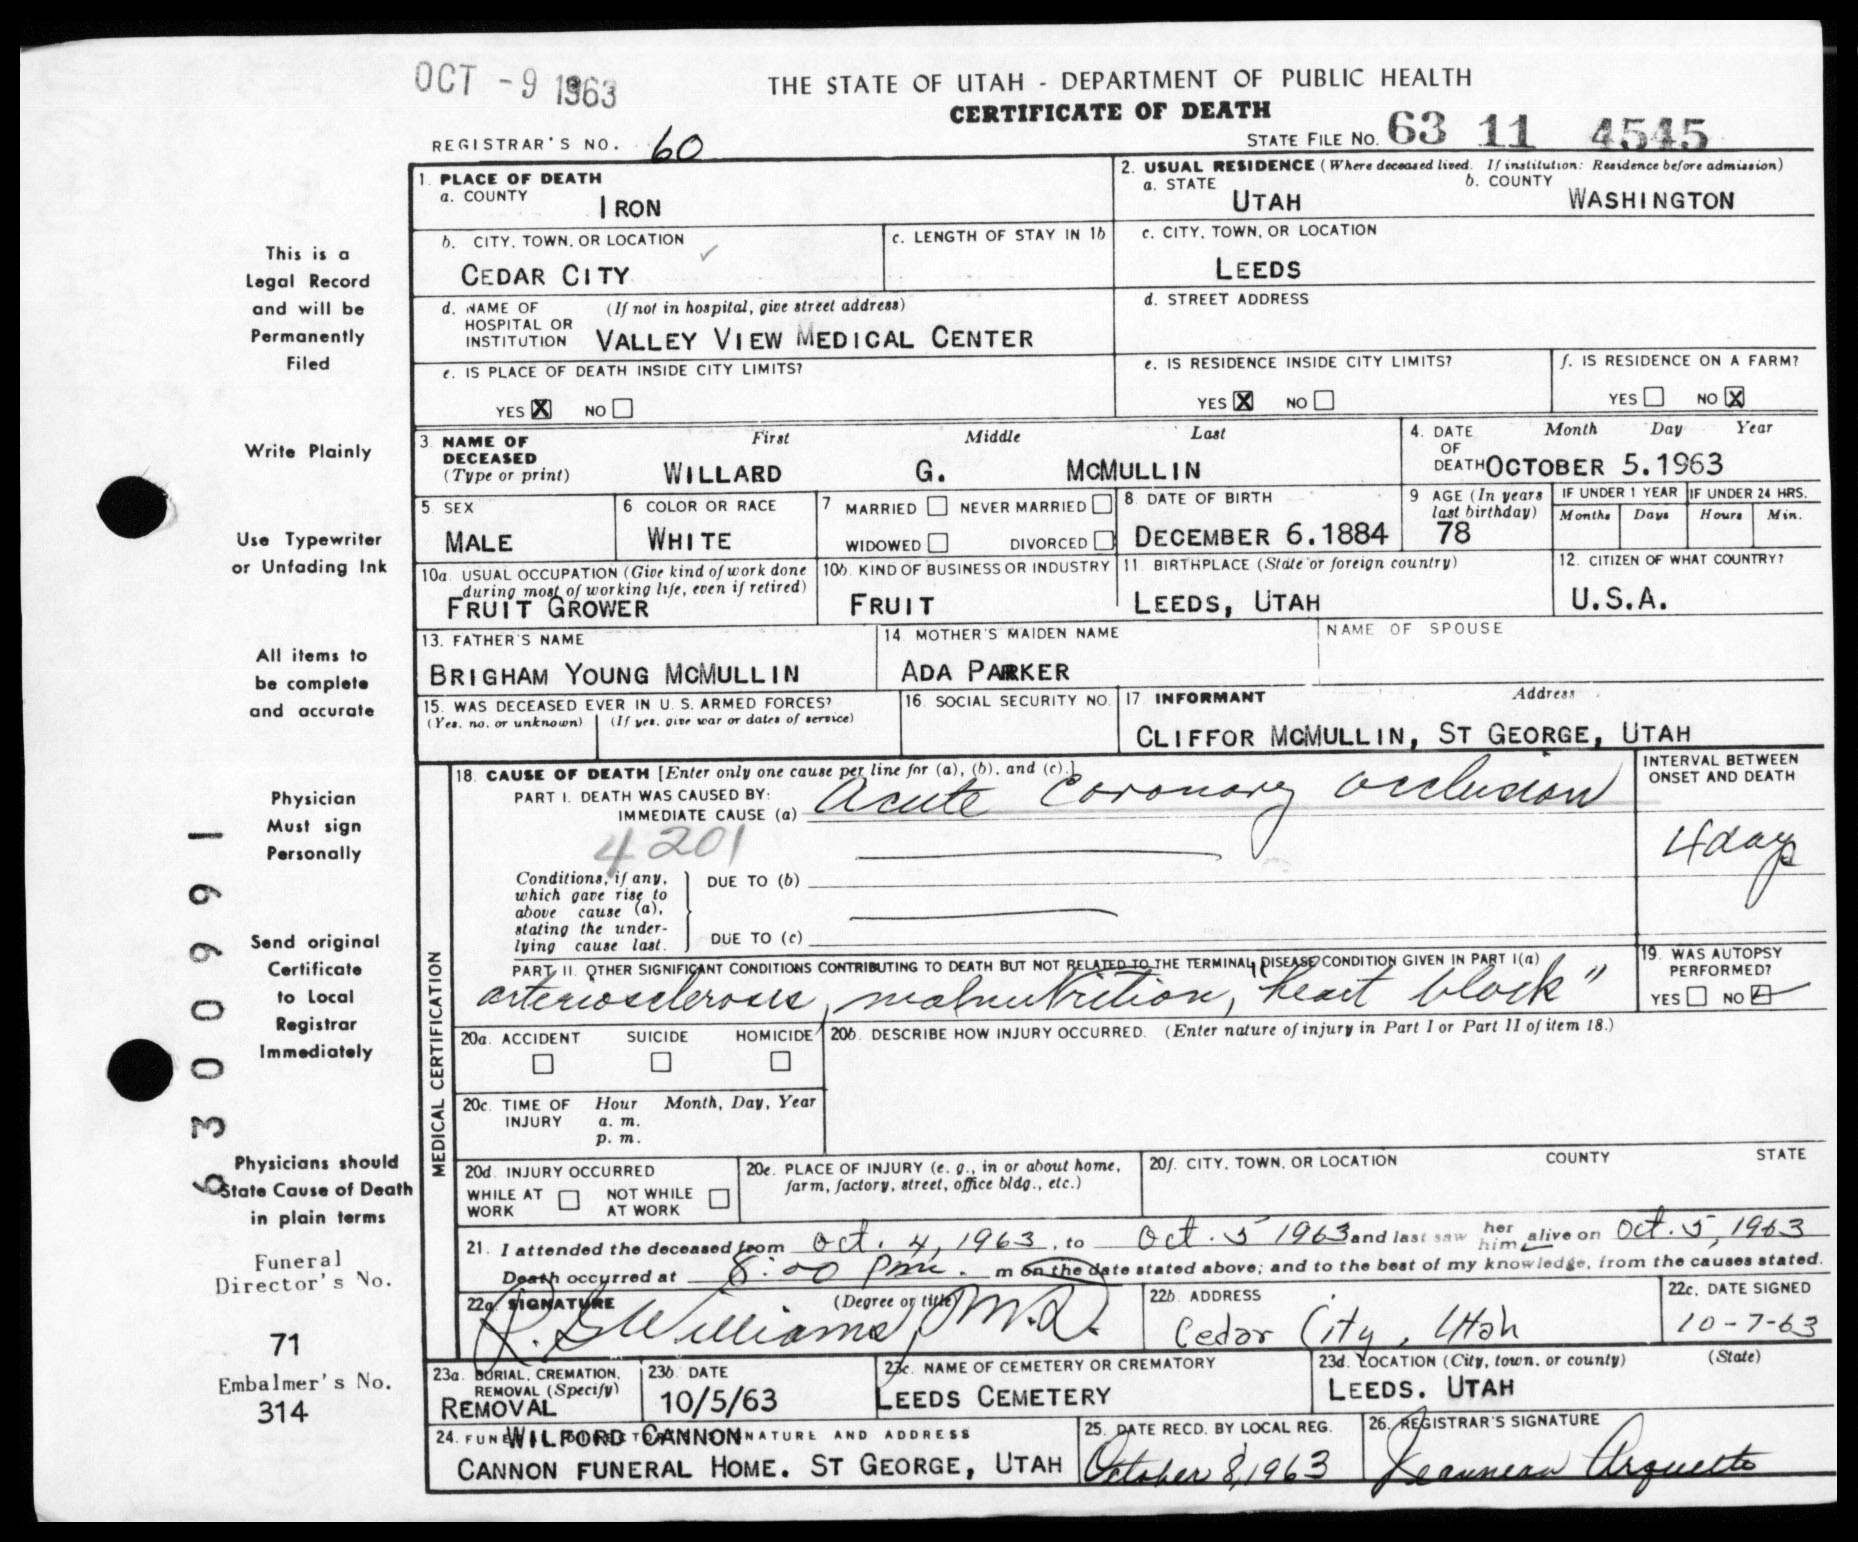 OCT - 9 1963
THE STATE OF UTAH - DEPARTMENT OF PUBLIC HEALTH
CERTIFICATE OF DEATH
REGISTRAR'S NO. 60
STATE FILE NO. 63 11 4545
This is a
Legal Record
and will be
Permanently
Filed
Write Plainly
Use Typewriter
or Unfading Ink
All items to
be complete
and accurate
Physician
Must sign
Personally
Send original
Certificate
to Local
Registrar
Immediately
Physicians should
State Cause of Death
in plain terms
Funeral
Director's No.
71
Embalmer's No.
314
6300991
1. PLACE OF DEATH
a. COUNTY
IRON
2. USUAL RESIDENCE (Where deceased lived. If institution: Residence before admission)
a. STATE
UTAH
b. COUNTY
WASHINGTON
b. CITY, TOWN, OR LOCATION
CEDAR CITY
c. LENGTH OF STAY IN 1b
c. CITY, TOWN, OR LOCATION
LEEDS
d. NAME OF (If not in hospital, give street address)
HOSPITAL OR
INSTITUTION VALLEY VIEW MEDICAL CENTER
d. STREET ADDRESS
e. IS PLACE OF DEATH INSIDE CITY LIMITS?
YES X NO
e. IS RESIDENCE INSIDE CITY LIMITS?
YES X NO
f. IS RESIDENCE ON A FARM?
YES NO X
3. NAME OF First Middle Last
DECEASED
(Type or print) WILLARD G. McMULLIN
4. DATE Month Day Year
OF
DEATH OCTOBER 5.1963
5. SEX
MALE
6 COLOR OR RACE
WHITE
7 MARRIED NEVER MARRIED
WIDOWED DIVORCED
8. DATE OF BIRTH
DECEMBER 6.1884
9 AGE (In years
last birthday)
78
IF UNDER 1 YEAR IF UNDER 24 HRS.
Months Days Hours Min.
10a. USUAL OCCUPATION (Give kind of work done
during most of working life, even if retired)
FRUIT GROWER
10b. KIND OF BUSINESS OR INDUSTRY
FRUIT
11. BIRTHPLACE (State or foreign country)
LEEDS, UTAH
12. CITIZEN OF WHAT COUNTRY?
U.S.A.
13. FATHER'S NAME
BRIGHAM YOUNG McMULLIN
14. MOTHER'S MAIDEN NAME
ADA PARKER
NAME OF SPOUSE
15. WAS DECEASED EVER IN U. S. ARMED FORCES?
(Yes, no, or unknown) (If yes, give war or dates of service)
16. SOCIAL SECURITY NO.
17 INFORMANT Address
CLIFFOR McMULLIN, ST GEORGE, UTAH
MEDICAL CERTIFICATION
18. CAUSE OF DEATH [Enter only one cause per line for (a), (b), and (c).]
PART I. DEATH WAS CAUSED BY:
IMMEDIATE CAUSE (a) Acute Coronary Occlusion
INTERVAL BETWEEN
ONSET AND DEATH
4 days
4201
Conditions, if any,
which gave rise to
above cause (a),
stating the under-
lying cause last.
DUE TO (b)
DUE TO (c)
PART II. OTHER SIGNIFICANT CONDITIONS CONTRIBUTING TO DEATH BUT NOT RELATED TO THE TERMINAL DISEASE CONDITION GIVEN IN PART I(a)
arteriosclerosis, malnutrition, "heart block"
19. WAS AUTOPSY
PERFORMED?
YES NO
20a. ACCIDENT SUICIDE HOMICIDE
20b. DESCRIBE HOW INJURY OCCURRED. (Enter nature of injury in Part I or Part II of item 18.)
20c. TIME OF Hour Month, Day, Year
INJURY a. m.
p. m.
20d. INJURY OCCURRED
WHILE AT WORK NOT WHILE AT WORK
20e. PLACE OF INJURY (e. g., in or about home,
farm, factory, street, office bldg., etc.)
20f. CITY, TOWN, OR LOCATION COUNTY STATE
21. I attended the deceased from Oct. 4, 1963, to Oct. 5 1963 and last saw her him alive on Oct. 5, 1963
Death occurred at 8:00 Pm. m on the date stated above; and to the best of my knowledge, from the causes stated.
22a. SIGNATURE (Degree or title)
R. G. Williams, M.D.
22b. ADDRESS
Cedar City, Utah
22c. DATE SIGNED
10-7-63
23a. BURIAL, CREMATION,
REMOVAL (Specify)
REMOVAL
23b DATE
10/5/63
23c. NAME OF CEMETERY OR CREMATORY
LEEDS CEMETERY
23d. LOCATION (City, town, or county) (State)
LEEDS. UTAH
24. FUNERAL DIRECTOR'S SIGNATURE AND ADDRESS
WILFORD CANNON
CANNON FUNERAL HOME. ST GEORGE, UTAH
25. DATE RECD. BY LOCAL REG.
October 8, 1963
26. REGISTRAR'S SIGNATURE
Jeannean Arquette